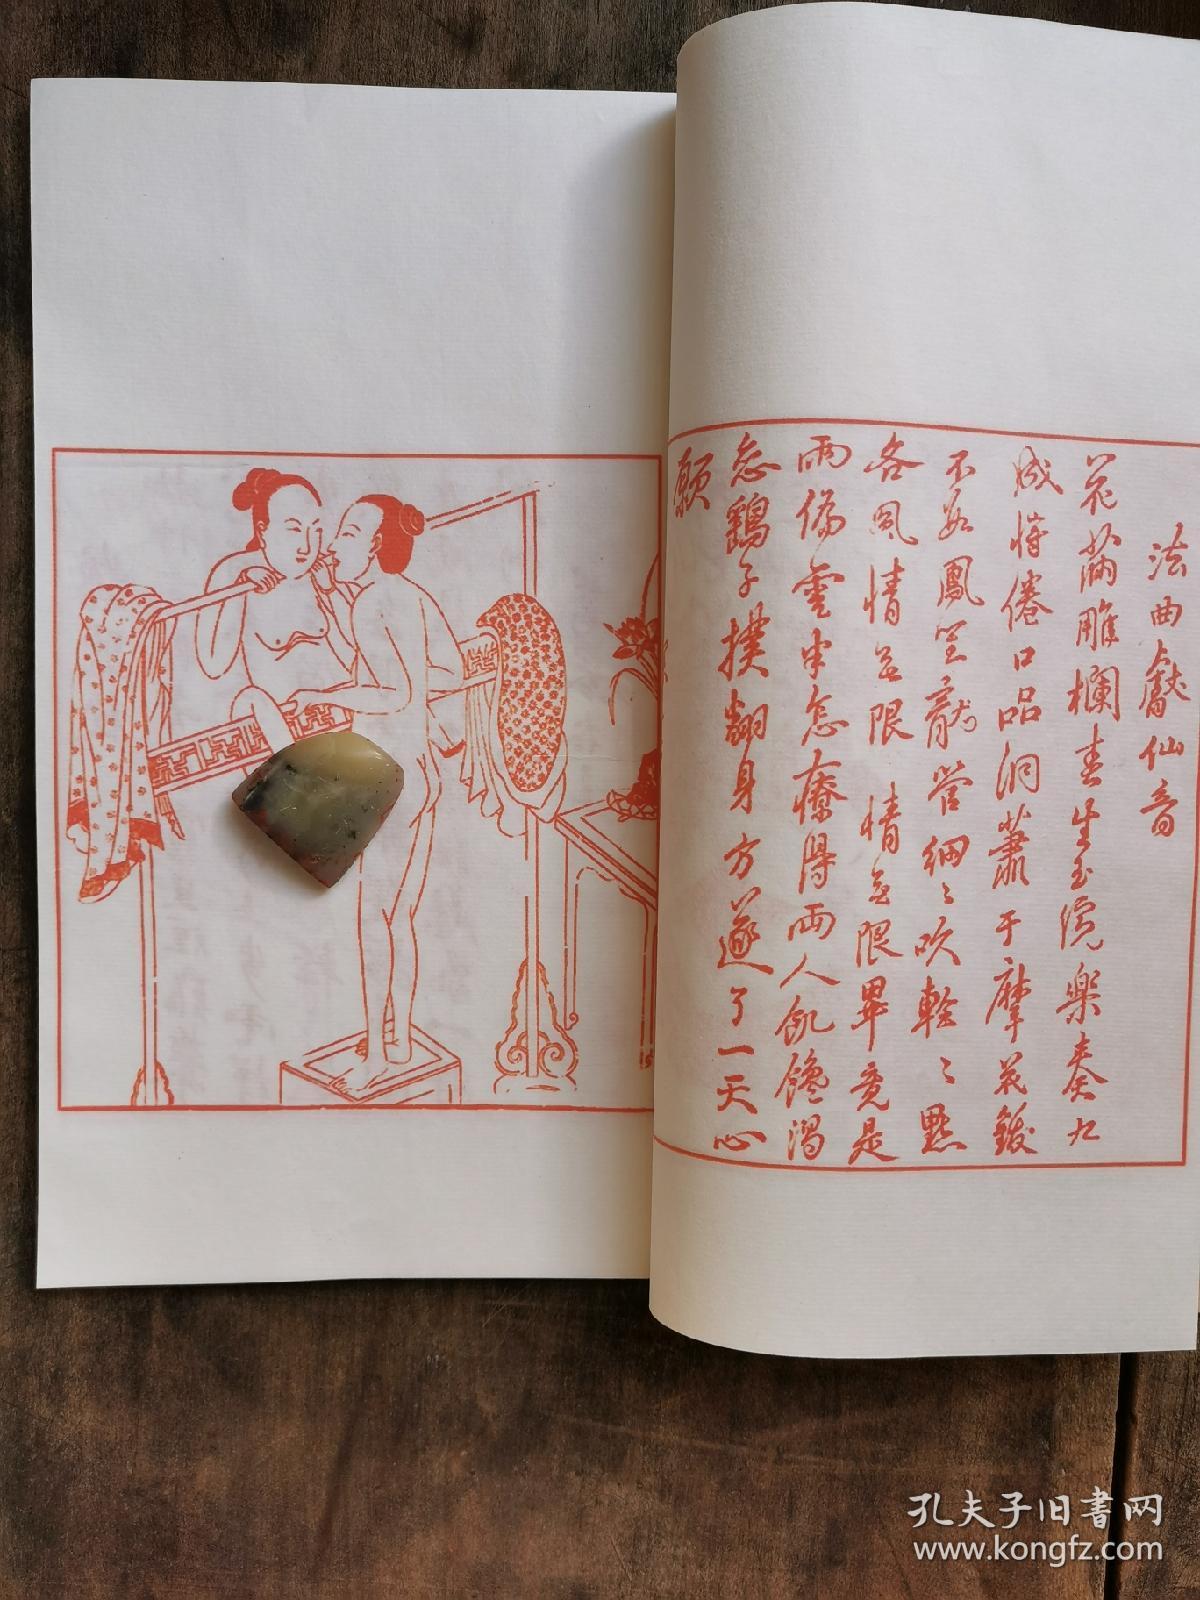 法曲獻仙音
花滿雕欄春生玉院樂奏九
成將倦口品洞蕭手摩花鈸
不如鳳笙龍管細〻吹輕〻點
各風情無限 情無限畢竟是
兩偏雲半怎療得兩人飢饞渴
忽鷂子撲翻身方遂了一天心
願
孔夫子旧書网
www.kongfz.com